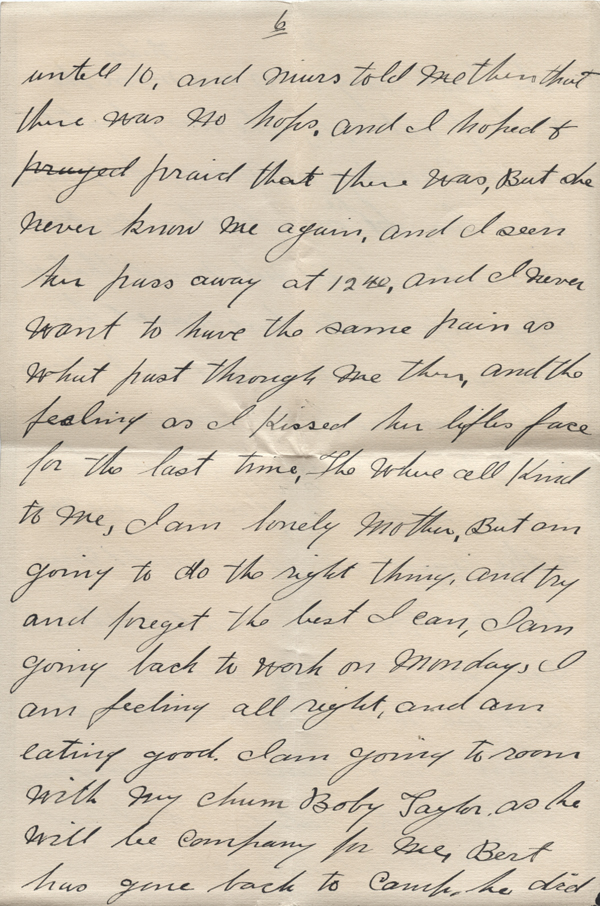 6
untell 10, and nurs told me then that
there was no hope. and I hoped &
prayed praid that there was, But she
never know me again, and I seen
her pass away at 12 40, and I never
want to have the same pain as
what past through me then, and the
feeling as I kissed her lifles face
for the last time, The Where all Kind
to me, I am lonely Mother, But am
going to do the right thing, and try
and forget the best I can, I am
going back to work on Monday, I
am feeling all right, and am
eating good. I am going to room
with my chum Boby Taylor, as he
will be company for me, Bert
has gone back to Camp, he did